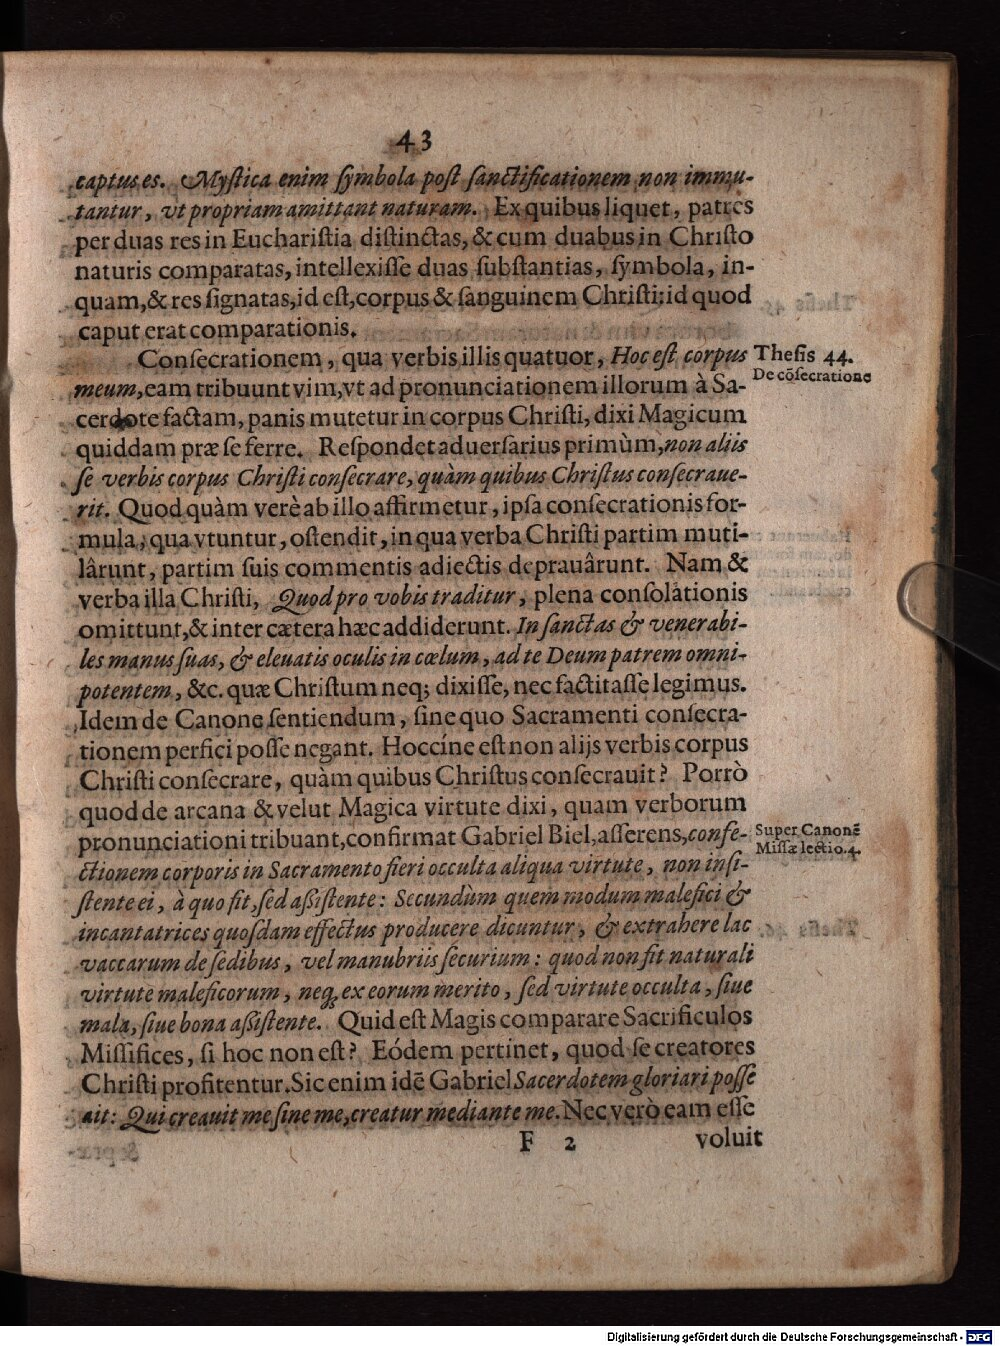 43
captus es. Myſtica enim ſymbola poſt ſanctificationem non immu-
tantur, vt propriam amittant naturam. Ex quibus liquet, patres
per duas res in Euchariſtia diſtinctas, & cum duabus in Chriſto
naturis comparatas, intellexiſſe duas ſubſtantias, ſymbola, in-
quam, & res ſignatas, id eſt, corpus & ſanguinem Chriſti: id quod
caput erat comparationis.
Conſecrationem, qua verbis illis quatuor, Hoc eſt corpus
Theſis 44.
De cōſecratione
meum, eam tribuunt vim, vt ad pronunciationem illorum à Sa-
cerdote factam, panis mutetur in corpus Chriſti, dixi Magicum
quiddam præ ſe ferre. Reſpondet aduerſarius primùm, non aliis
ſe verbis corpus Chriſti conſecrare, quàm quibus Chriſtus conſecraue-
rit. Quod quàm verè ab illo affirmetur, ipſa conſecrationis for-
mula, qua vtuntur, oſtendit, in qua verba Chriſti partim muti-
lârunt, partim ſuis commentis adiectis deprauârunt. Nam &
verba illa Chriſti, Quod pro vobis traditur, plena conſolationis
omittunt, & inter cætera hæc addiderunt. In ſanctas & venerabi-
les manus ſuas, & eleuatis oculis in cœlum, ad te Deum patrem omni-
potentem, &c. quæ Chriſtum neq; dixiſſe, nec factitaſſe legimus.
Idem de Canone ſentiendum, ſine quo Sacramenti conſecra-
tionem perfici poſſe negant. Hoccíne eſt non alijs verbis corpus
Chriſti conſecrare, quàm quibus Chriſtus conſecrauit? Porrò
quod de arcana & velut Magica virtute dixi, quam verborum
pronunciationi tribuant, confirmat Gabriel Biel, aſſerens, confe-
Super Canonē
Miſſæ lectio. 4.
ctionem corporis in Sacramento fieri occulta aliqua virtute, non inſi-
ſtente ei, à quo fit, ſed aſſiſtente: Secundùm quem modum malefici &
incantatrices quoſdam effectus producere dicuntur, & extrahere lac
vaccarum de ſedibus, vel manubriis ſecurium: quod non fit naturali
virtute maleficorum, neq; ex eorum merito, ſed virtute occulta, ſiue
mala, ſiue bona aſſiſtente. Quid eſt Magis comparare Sacrificulos
Miſſifices, ſi hoc non eſt? Eódem pertinet, quod ſe creatores
Chriſti profitentur. Sic enim idē Gabriel Sacerdotem gloriari poſſe
ait: Qui creauit me ſine me, creatur mediante me. Nec verò eam eſſe
F 2
voluit
Digitalisierung gefördert durch die Deutsche Forschungsgemeinschaft - DFG